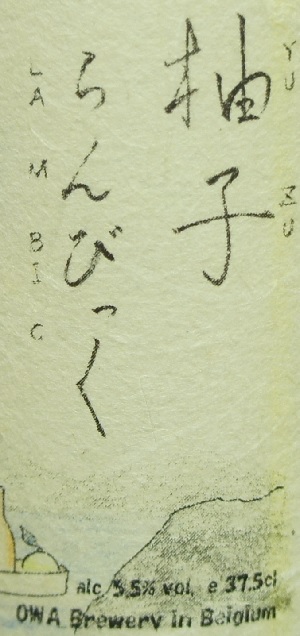 柚子
YUZU
らんびっく
LAMBIC
alc 5,5% vol, e 37.5cl
OWA Brewery in Belgium